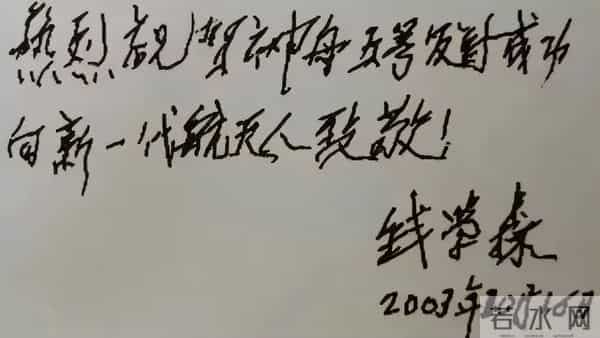 热烈祝贺神舟五号发射成功
向新一代航天人致敬!
钱学森
2003年
若水网